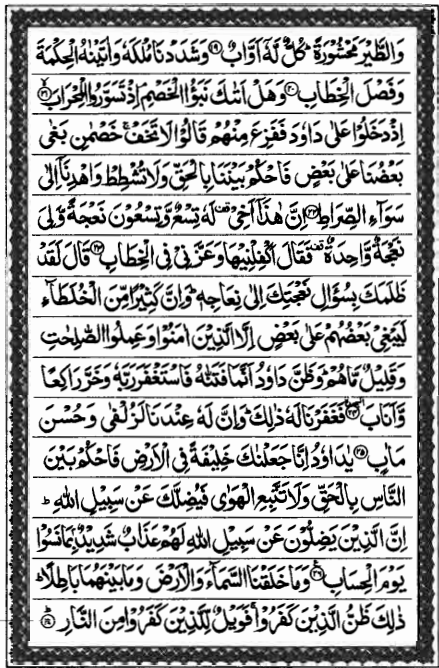 وَالطَّيْرَ مَحْشُوْرَةً ؕ كُلٌّ لَّهٗۤ اَوَّابٌ ﴿۱۹﴾ وَشَدَدْنَا مُلْكَهٗ وَاٰتَيْنٰهُ الْحِكْمَةَ
وَفَصْلَ الْخِطَابِ ﴿۲۰﴾ وَهَلْ اَتٰىكَ نَبَؤُا الْخَصْمِ ۘ اِذْ تَسَوَّرُوا الْمِحْرَابَ ﴿۲۱﴾
اِذْ دَخَلُوْا عَلٰى دَاوٗدَ فَفَزِعَ مِنْهُمْ قَالُوْا لَا تَخَفْ ۚ خَصْمٰنِ بَغٰى
بَعْضُنَا عَلٰى بَعْضٍ فَاحْكُمْ بَيْنَنَا بِالْحَقِّ وَلَا تُشْطِطْ وَاهْدِنَاۤ اِلٰى
سَوَآءِ الصِّرَاطِ ﴿۲۲﴾ اِنَّ هٰذَاۤ اَخِيْ ۟ لَهٗ تِسْعٌ وَّتِسْعُوْنَ نَعْجَةً وَّلِيَ
نَعْجَةٌ وَّاحِدَةٌ ۟ فَقَالَ اَكْفِلْنِيْهَا وَعَزَّنِيْ فِي الْخِطَابِ ﴿۲۳﴾ قَالَ لَقَدْ
ظَلَمَكَ بِسُؤَالِ نَعْجَتِكَ اِلٰى نِعَاجِهٖ ؕ وَاِنَّ كَثِيْرًا مِّنَ الْخُلَطَآءِ
لَيَبْغِيْ بَعْضُهُمْ عَلٰى بَعْضٍ اِلَّا الَّذِيْنَ اٰمَنُوْا وَعَمِلُوا الصّٰلِحٰتِ
وَقَلِيْلٌ مَّا هُمْ ؕ وَظَنَّ دَاوٗدُ اَنَّمَا فَتَنّٰهُ فَاسْتَغْفَرَ رَبَّهٗ وَخَرَّ رَاكِعًا
وَّاَنَابَ ﴿۲۴﴾ فَغَفَرْنَا لَهٗ ذٰلِكَ ؕ وَاِنَّ لَهٗ عِنْدَنَا لَزُلْفٰى وَحُسْنَ
مَاٰبٍ ﴿۲۵﴾ يٰدَاوٗدُ اِنَّا جَعَلْنٰكَ خَلِيْفَةً فِي الْاَرْضِ فَاحْكُمْ بَيْنَ
النَّاسِ بِالْحَقِّ وَلَا تَتَّبِعِ الْهَوٰى فَيُضِلَّكَ عَنْ سَبِيْلِ اللّٰهِ ؕ
اِنَّ الَّذِيْنَ يَضِلُّوْنَ عَنْ سَبِيْلِ اللّٰهِ لَهُمْ عَذَابٌ شَدِيْدٌۢ بِمَا نَسُوْا
يَوْمَ الْحِسَابِ ﴿۲۶﴾ وَمَا خَلَقْنَا السَّمَآءَ وَالْاَرْضَ وَمَا بَيْنَهُمَا بَاطِلًا ؕ
ذٰلِكَ ظَنُّ الَّذِيْنَ كَفَرُوْا ۚ فَوَيْلٌ لِّلَّذِيْنَ كَفَرُوْا مِنَ النَّارِ ﴿۲۷﴾